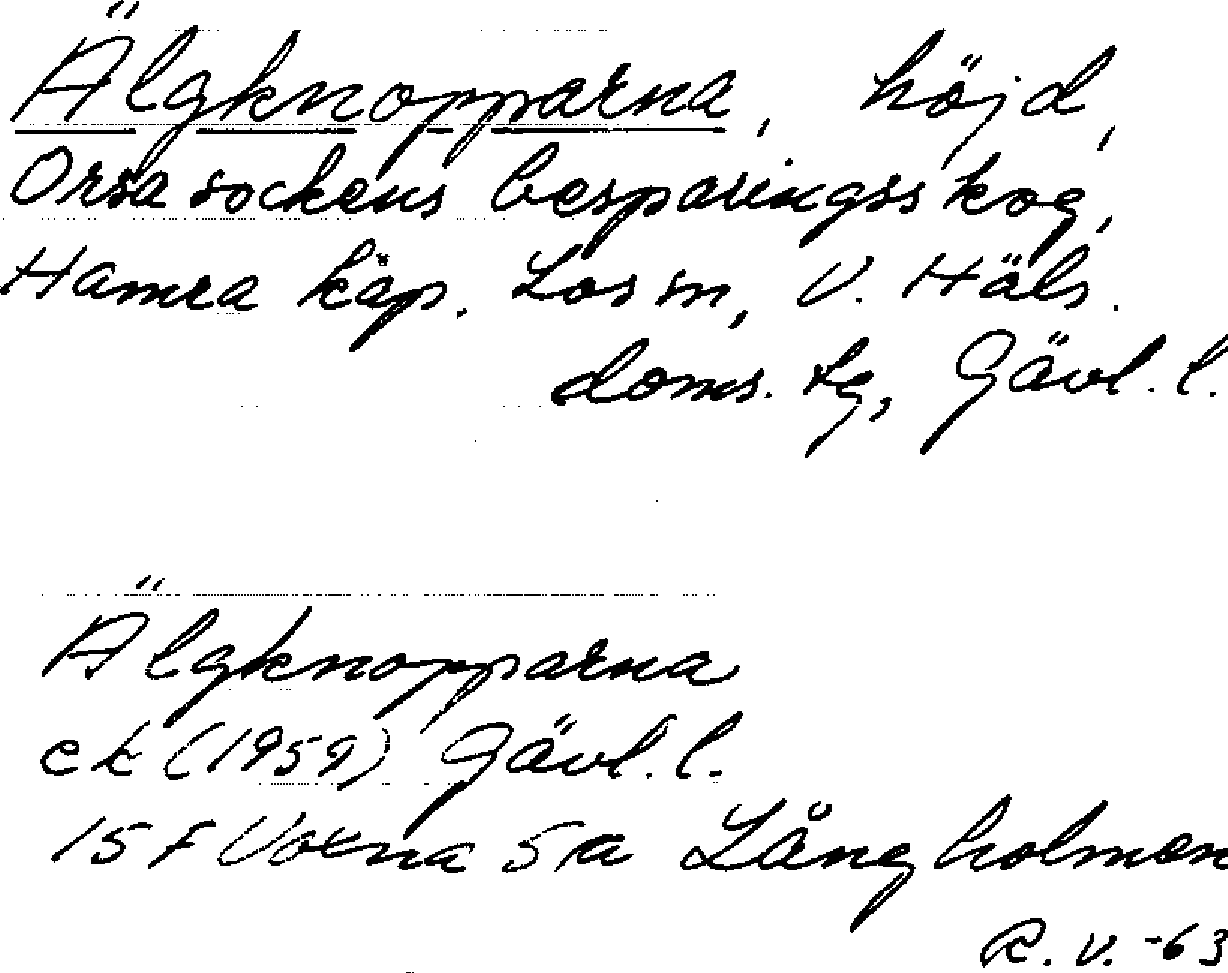 Älgknopparna, höjd,
Orsa sockens besparingsskog,
Hamra käp. Los sn, V. Häls.
doms. tg, Gävl. l.
Älgknopparna
ek (1959) Gävl. l.
15 F Voxna 5 a Långholmen
R. V. -63